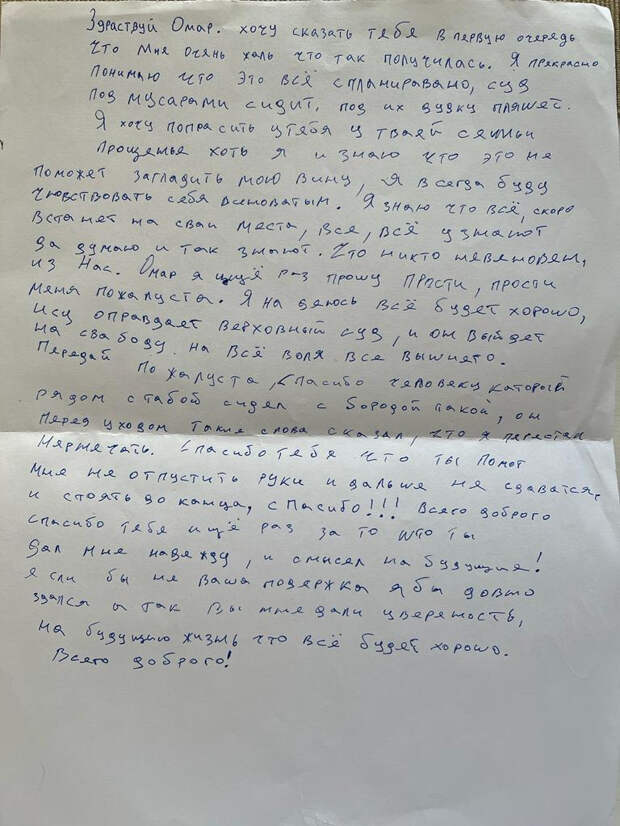 Здраствуй Омар. хочу сказать тебя в первую очередь
что мне очень жаль что так получилась. Я прекрасно
понимаю что это всё спланировано, суд
под мусарами сидит, под их дудку пляшет.
Я хочу попрасить у тебя у тваей семьи
прощенье хоть я и знаю что это не
поможет загладить мою вину, я всегда буду
чювствовать себя виноватым. Я знаю что всё, скоро
встанет на сваи места, все, всё узнают
да думаю и так знают. Что никто невеновен,
из Нас. Омар я ищё раз прошу прости, прости
меня пожалуста. Я на деюсь всё будет хорошо,
и оправдает верховный суд, и он выйдет
на свабоду. на всё воля. Все вышнего.
Передай
пожалуста, спасибо человеку каторый
рядом стабой сидел с бородой такой, он
перед уходом такие слова сказал, что я перестал
Спасибо тебя что ты помог
мне не отпустить руки и дальше не сдаватся,
и стоять до канца, спасибо!!! Всего доброго
спасибо тебя ищё раз за то што ты
дал мне надежду, и смысел на будущие!
я сли бы не ваша подержка я бы довно
здался а так вы мне дали уверяность,
на будущию жизнь что всё будет хорошо.
Всего доброго!